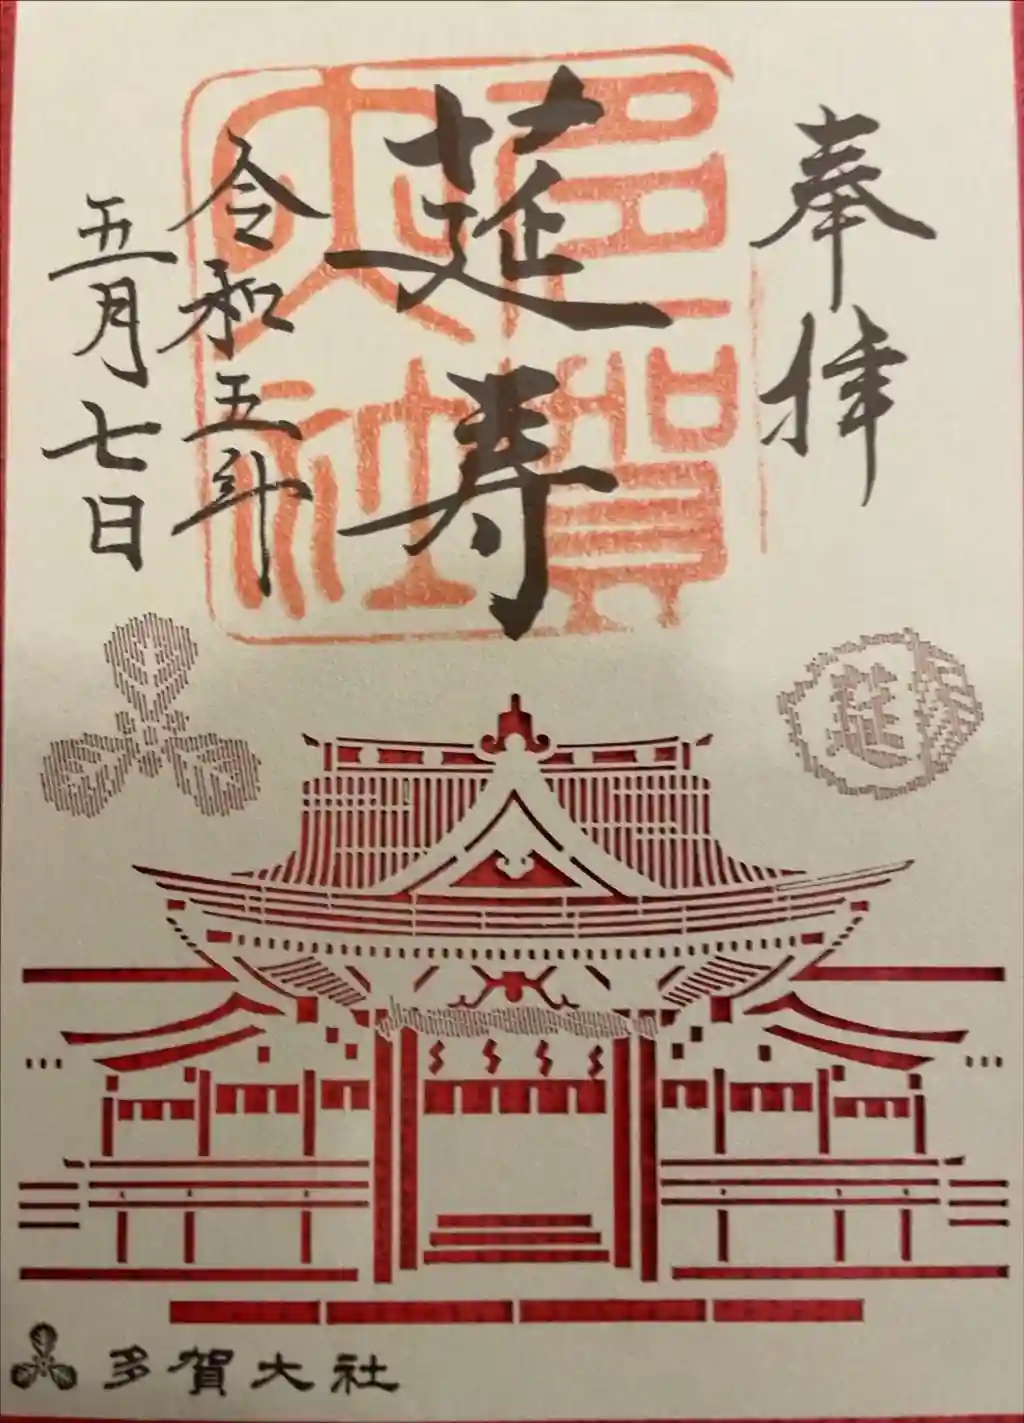 奉拝
多賀大社
莚寿
令和五年
五月七日
莚
多賀大社